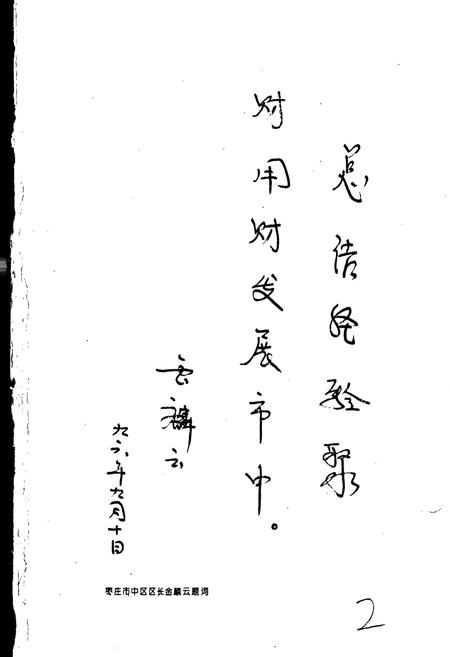 总结经验聚
财用财发展市中。
金麟云
九六年九月十日
枣庄市中区区长金麟云题词
2